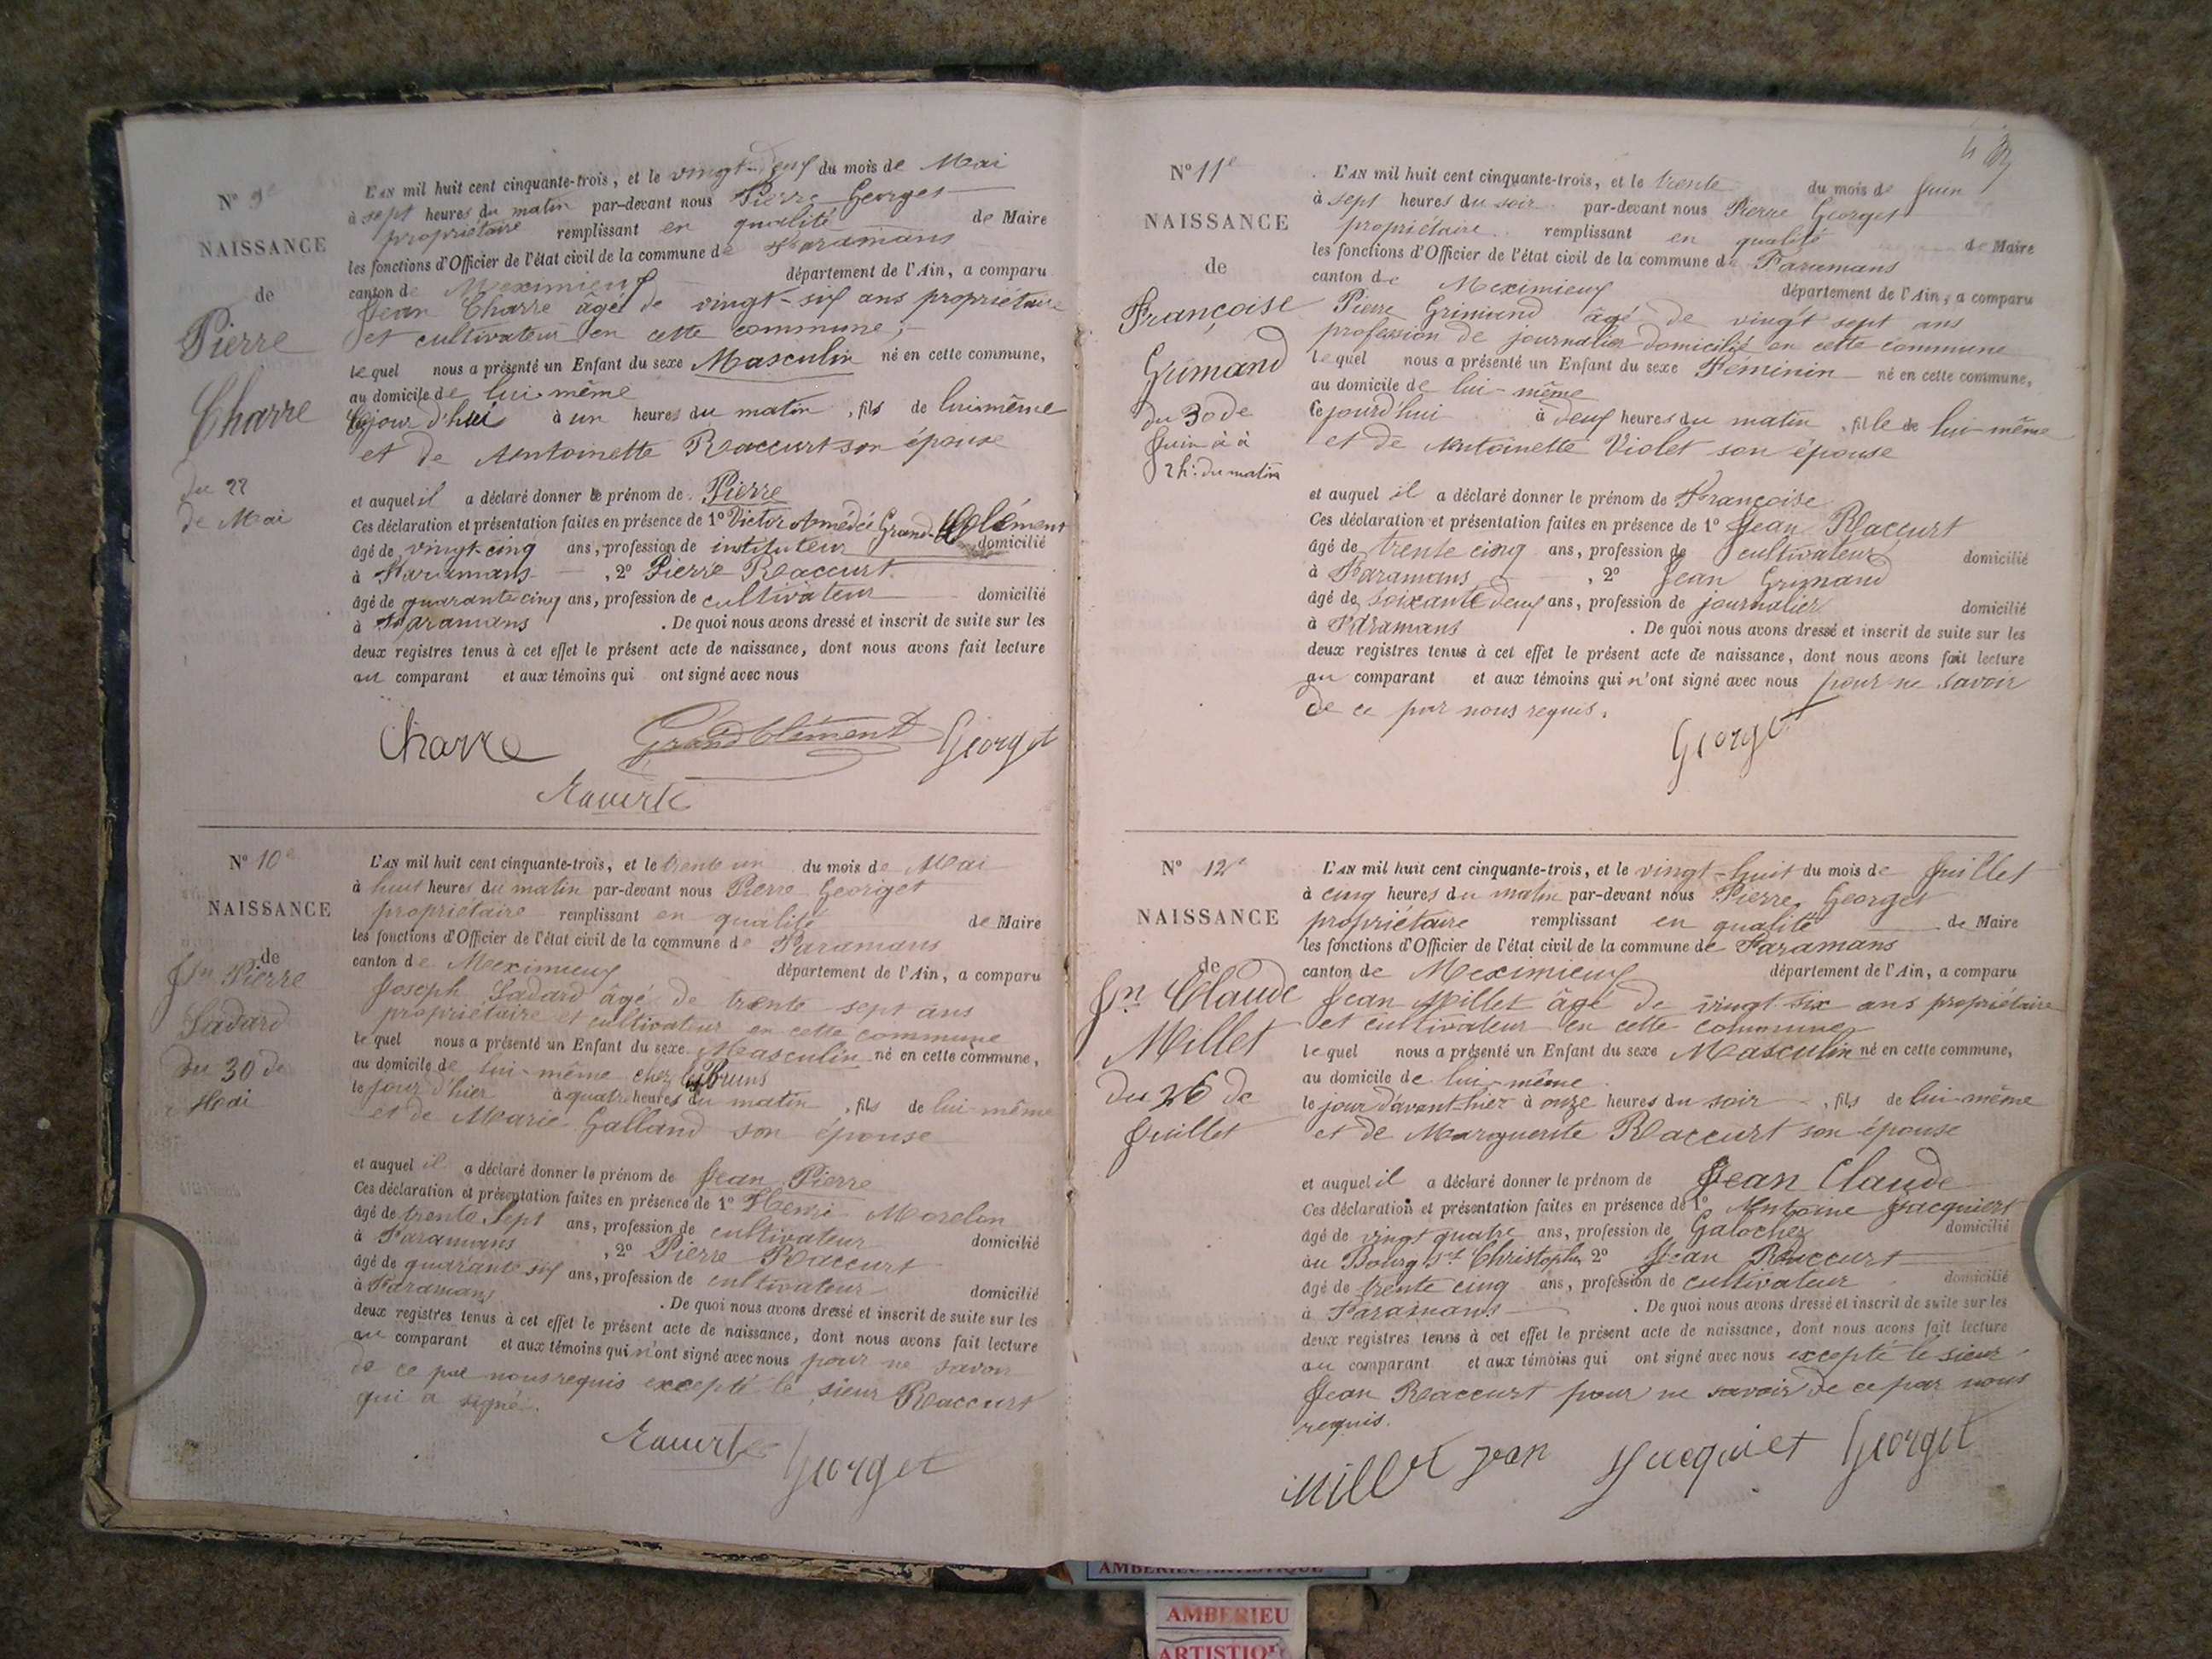 N° 9e
NAISSANCE
de
Pierre
Charre
du 22
de Mai
L'AN mil huit cent cinquante-trois, et le vingt-deux du mois de Mai
à sept heures du matin par-devant nous Pierre Georget
propriétaire remplissant en qualité de Maire
les fonctions d'Officier de l'état civil de la commune de Faramans
canton de Meximieux département de l'Ain, a comparu
Jean Charre âgé de vingt-six ans propriétaire
et cultivateur en cette commune,
lequel nous a présenté un Enfant du sexe Masculin né en cette commune,
au domicile de lui-même
cejour d'hui à un heures du matin, fils de lui-même
et de Antoinette Raccurt son épouse
et auquel il a déclaré donner le prénom de Pierre
Ces déclaration et présentation faites en présence de 1° Victor Amédée Grand-Clément
âgé de vingt-cinq ans, profession de instituteur domicilié
à Faramans, 2° Pierre Raccurt
âgé de quarante cinq ans, profession de cultivateur domicilié
à Faramans. De quoi nous avons dressé et inscrit de suite sur les
deux registres tenus à cet effet le présent acte de naissance, dont nous avons fait lecture
au comparant et aux témoins qui ont signé avec nous
Charre Grandclément Georget
N° 10e
NAISSANCE
de
Jn Pierre
Ladard
du 30 de
Mai
L'AN mil huit cent cinquante-trois, et le trente un du mois de Mai
à huit heures du matin par-devant nous Pierre Georget
propriétaire remplissant en qualité de Maire
les fonctions d'Officier de l'état civil de la commune de Faramans
canton de Meximieux département de l'Ain, a comparu
Joseph Ladard âgé de trente sept ans
propriétaire et cultivateur en cette commune
lequel nous a présenté un Enfant du sexe Masculin né en cette commune,
au domicile de lui-même chez les Bruns
le jour d'hier à quatre heures du matin, fils de lui-même
et de Marie Galland son épouse
et auquel il a déclaré donner le prénom de Jean Pierre
Ces déclaration et présentation faites en présence de 1° Henri Morelon
âgé de trente sept ans, profession de cultivateur domicilié
à Faramans, 2° Pierre Raccurt
âgé de quarante six ans, profession de cultivateur domicilié
à Faramans. De quoi nous avons dressé et inscrit de suite sur les
deux registres tenus à cet effet le présent acte de naissance, dont nous avons fait lecture
au comparant et aux témoins qui n'ont signé avec nous pour ne savoir
de ce par nous requis excepté le sieur Raccurt
qui a signé.
Georget
N° 11e
NAISSANCE
de
Françoise
Grimand
du 30 de
Juin à
2 h. du matin
L'AN mil huit cent cinquante-trois, et le trente du mois de Juin
à sept heures du soir par-devant nous Pierre Georget
propriétaire remplissant en qualité de Maire
les fonctions d'Officier de l'état civil de la commune de Faramans
canton de Meximieux département de l'Ain, a comparu
Pierre Grimand âgé de vingt sept ans
profession de journalier domicilié en cette commune
lequel nous a présenté un Enfant du sexe Feminin né en cette commune,
au domicile de lui-même
cejourd'hui à deux heures du matin, fille de lui-même
et de Antoinette Violet son épouse
et auquel il a déclaré donner le prénom de Françoise
Ces déclaration et présentation faites en présence de 1° Jean Raccurt
âgé de trente cinq ans, profession de cultivateur domicilié
à Faramans, 2° Jean Grimand
âgé de soixante deux ans, profession de journalier domicilié
à Faramans. De quoi nous avons dressé et inscrit de suite sur les
deux registres tenus à cet effet le présent acte de naissance, dont nous avons fait lecture
au comparant et aux témoins qui n'ont signé avec nous pour ne savoir
de ce par nous requis.
Georget
N° 12e
NAISSANCE
de
Jn Claude
Millet
du 26 de
Juillet
L'AN mil huit cent cinquante-trois, et le vingt-huit du mois de Juillet
à cinq heures du matin par-devant nous Pierre Georget
propriétaire remplissant en qualité de Maire
les fonctions d'Officier de l'état civil de la commune de Faramans
canton de Meximieux département de l'Ain, a comparu
Jean Millet âgé de vingt six ans propriétaire
et cultivateur en cette commune
lequel nous a présenté un Enfant du sexe Masculin né en cette commune,
au domicile de lui-même
le jour d'avant-hier à onze heures du soir, fils de lui-même
et de Marguerite Raccurt son épouse
et auquel il a déclaré donner le prénom de Jean Claude
Ces déclaration et présentation faites en présence de 1° Antoine Jacquiert
âgé de vingt quatre ans, profession de Galocher domicilié
au Bourg St Christophe, 2° Jean Raccurt
âgé de trente cinq ans, profession de cultivateur domicilié
à Faramans. De quoi nous avons dressé et inscrit de suite sur les
deux registres tenus à cet effet le présent acte de naissance, dont nous avons fait lecture
au comparant et aux témoins qui ont signé avec nous excepté le sieur
Jean Raccurt pour ne savoir de ce par nous
requis.
Millet Jean Jacquiet Georget
AMBERIEU ARTISTIQUE
AMBERIEU
ARTISTIQUE